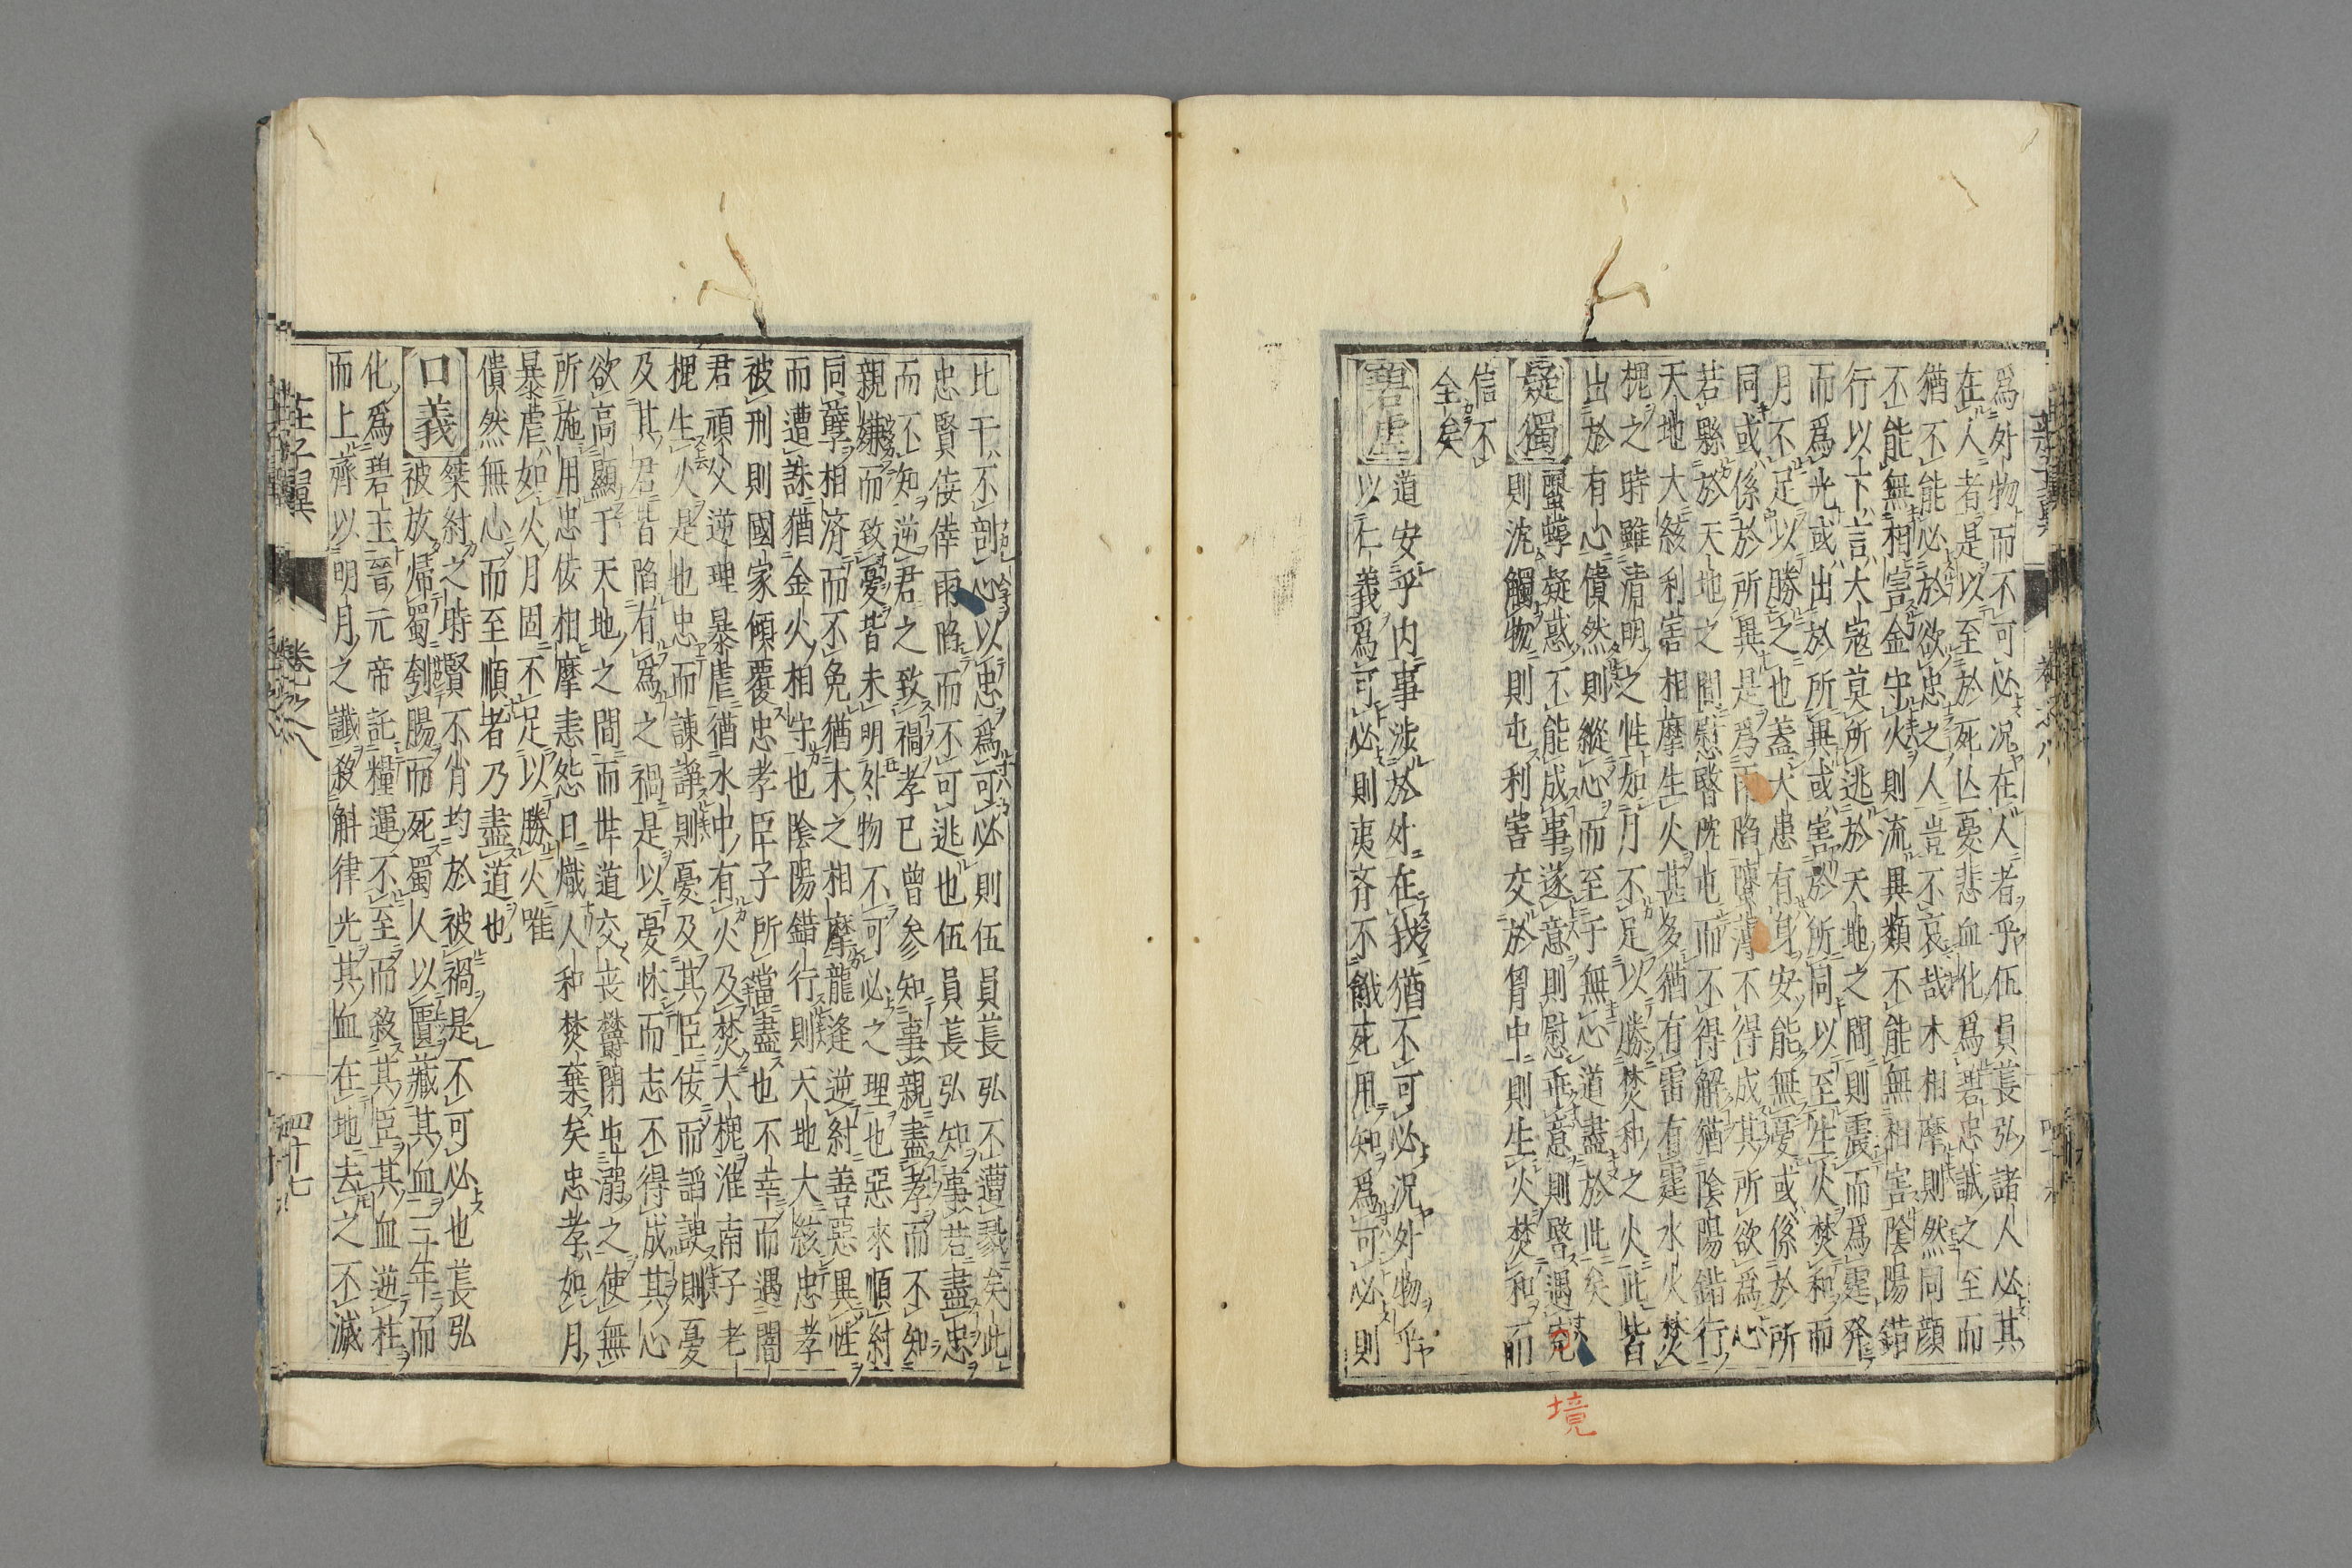 爲外物而不可必况在人者乎伍員萇弘諸人必其
在人者是以至於死亾憂悲血化爲碧忠誠之至而
猶不能必於欲忠之人豈不哀哉木相摩則然同顔
不能無相害金守火則流異類不能無相害陰陽錯
行以上下言大寇莫所逃於天地之間則震而爲霆発
而爲光或出於所異或害於所同以至生火焚和而
月不足以勝之也蓋大患有身安能無憂或係於所
同或係於所異是爲兩陷隳薄不得成其所欲爲心
若縣於天地之間慰暋沈屯而不得解猶陰陽錯行
天地大絃利害相摩生火甚多猶有雷有霆水火焚
槐之時雖清明之性如月不足以勝焚和之火此皆
出於有心僓然則縱心而至于無心道盡於此矣
疑獨 螴蜳疑惑不能成事遂意則慰乖意則暋遇
則沈觸物則屯利害交於胷中則生火焚和而
信不
全矣
碧虚 道安乎内事涉於外在我猶不可必况外物乎
以仁義爲可必則夷齊不餓死用知爲可必則
境
莊子翼 卷之八
比干不剖心以忠爲可必則伍員萇弘不遭戮矣此
忠賢佞倖兩陷而不可逃也伍員萇弘知事君盡忠
而不知逆君之致禍孝已曾参知事親盡孝而不知
親嫌而致憂皆未明外物不可必之理也惡來順紂
同孽相济而不免猶木之相摩龍逢逆紂善惡異性
而遭誅猶金火相守也陰陽錯行則天地大絃忠孝
被刑則國家傾覆忠孝臣子所當盡也不幸而遇闇
君頑父逆理暴虐猶水中有火及焚大槐淮南子老
槐生火是也忠而諫諍則憂及其臣佞而謟諛則憂
及其君皆陷有爲之禍是以憂怵而志不得成其心
欲高顯于天地之間而世道交喪欝閉屯溺之使無
所施用忠佞相摩恚怨日熾人和焚棄矣忠孝如月
暴虐如火月固不足以勝火唯
僓然無心而至順者乃盡道也
口義 桀紂之時賢不肖均於被禍是不可必也萇弘
被放帰蜀刳腸而死蜀人以匱藏其血三年而
化爲碧玉晉元帝託糧運不至而殺其臣其血逆柱
而上齊以明月之讖殺斛律光其血在地去之不滅
莊子翼 卷之八 四十七